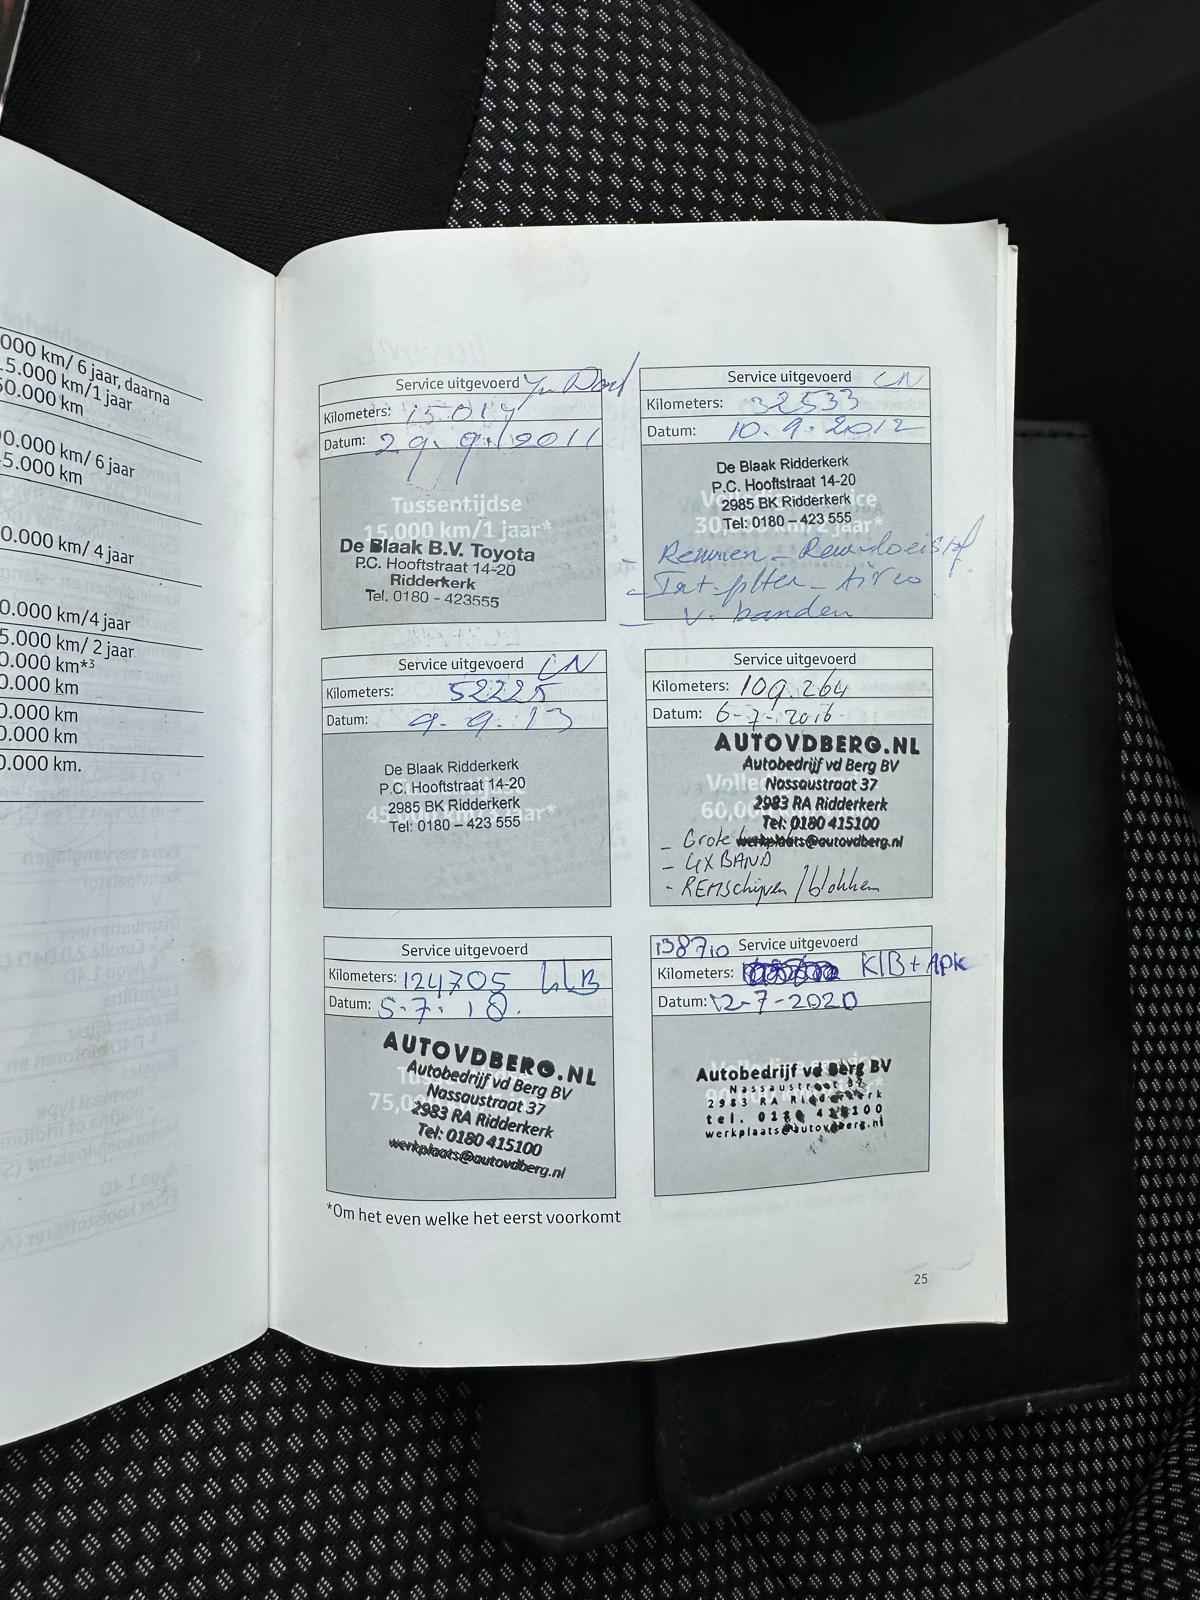 000 km/ 6 jaar, daarna
15.000 km/1 jaar
50.000 km
00.000 km/ 6 jaar
45.000 km
0.000 km/ 4 jaar
0.000 km/4 jaar
5.000 km/ 2 jaar
0.000 km*3
0.000 km
0.000 km
0.000 km
0.000 km.
Service uitgevoerd
Kilometers: 15.017
Datum: 29.9.2011
Tussentijdse
15,000 km/1 jaar*
De Blaak B.V. Toyota
P.C. Hooftstraat 14-20
Ridderkerk
Tel. 0180 - 423555
Service uitgevoerd CN
Kilometers: 32533
Datum: 10.9.2012
De Blaak Ridderkerk
P.C. Hooftstraat 14-20
2985 BK Ridderkerk
30,000 km/2 jaar*
Tel: 0180 – 423 555
- Remmen - Remvloeistof
- Int-filter - Airco
- V. banden
Service uitgevoerd CN
Kilometers: 52225
Datum: 9.9.13
De Blaak Ridderkerk
P.C. Hooftstraat 14-20
2985 BK Ridderkerk
Tel: 0180 – 423 555
Service uitgevoerd
Kilometers: 109.264
Datum: 6-7-2016
AUTOVDBERG.NL
Autobedrijf vd Berg BV
Nassaustraat 37
2983 RA Ridderkerk
Tel: 0180 415100
werkplaats@autovdberg.nl
- Grote
- 4X BAND
- REMSchijven / blokken
Service uitgevoerd
Kilometers: 124705 KLB
Datum: 5.7.18.
AUTOVDBERG.NL
Autobedrijf vd Berg BV
Nassaustraat 37
2983 RA Ridderkerk
Tel: 0180 415100
werkplaats@autovdberg.nl
138710 Service uitgevoerd
Kilometers: KlB + Apk
Datum: 12-7-2020
Autobedrijf vd Berg BV
Nassaustraat 37
2983 RA Ridderkerk
tel. 0180 415100
werkplaats@autovdberg.nl
*Om het even welke het eerst voorkomt
25